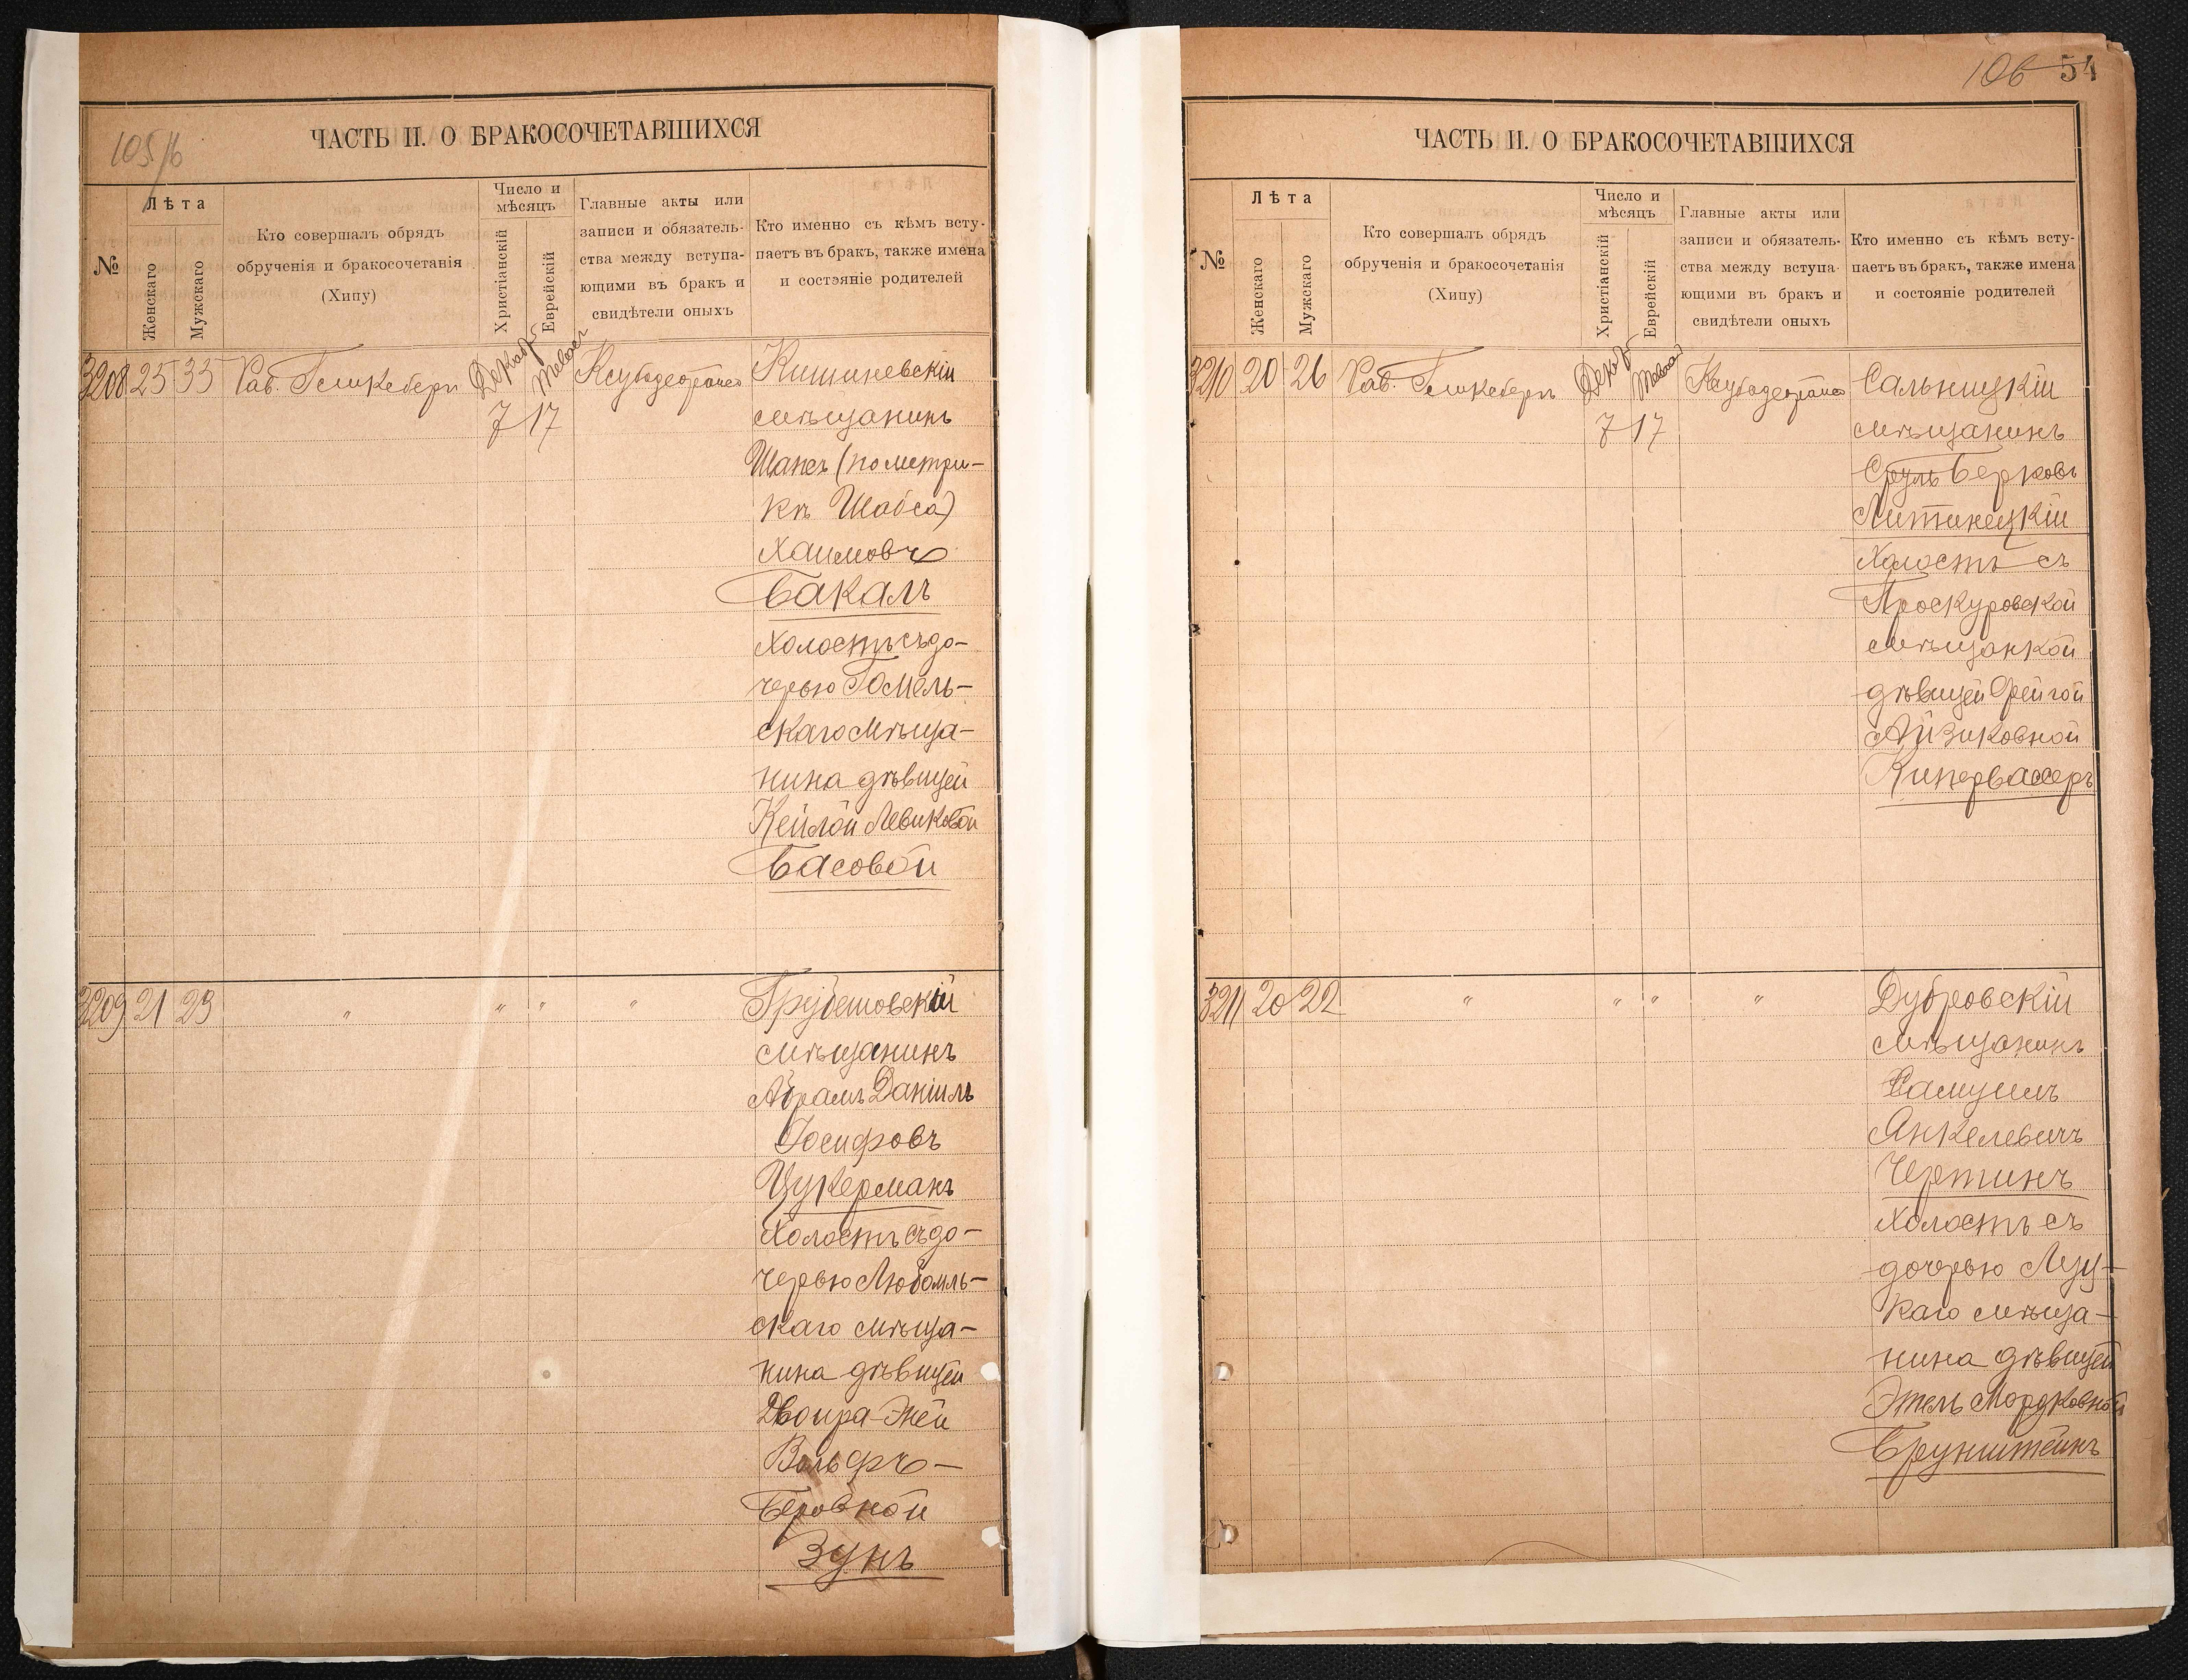 105/b
ЧАСТЬ II. О БРАКОСОЧЕТАВШИХСЯ
№
Лѣта
Женскаго
Мужскаго
Кто совершалъ обрядъ
обрученія и бракосочетанія
(Хипу)
Число и
мѣсяцъ
Христіанскій
Еврейскій
Главные акты или
записи и обязатель-
ства между вступа-
ющими въ бракъ и
свидѣтели оныхъ
Кто именно съ кѣмъ всту-
паетъ въ бракъ, также имена
и состояніе родителей
3208 25 35 Рав. Гликсбергъ
7 17
Кишиневскій
мѣщанинъ
Шапсъ (по метри-
кѣ Шабса)
Хаимовъ
Бакалъ
Холостъ съ до-
черью Гомель-
скаго мѣща-
нина дѣвицей
Кейлой Левиковой
Басовой
3209 21 23 " " " "
Грубешовскій
мѣщанинъ
Абрамъ Даніилъ
Іосифовъ
Цукерманъ
Холостъ съ до-
черью Любомль-
скаго мѣща-
нина дѣвицей
Двойра-Энея
Вольфъ-
Беровной
Зунъ
106 54
ЧАСТЬ II. О БРАКОСОЧЕТАВШИХСЯ
№
Лѣта
Женскаго
Мужскаго
Кто совершалъ обрядъ
обрученія и бракосочетанія
(Хипу)
Число и
мѣсяцъ
Христіанскій
Еврейскій
Главные акты или
записи и обязатель-
ства между вступа-
ющими въ бракъ и
свидѣтели оныхъ
Кто именно съ кѣмъ всту-
паетъ въ бракъ, также имена
и состояніе родителей
3210 20 26 Рав. Гликсбергъ
7 17
Сальницкій
мѣщанинъ
Сруль Берковъ
Литинецкій
Холостъ съ
Проскуровской
мѣщанкой
дѣвицей Фейгой
Айзиковной
Кипервассеръ
3211 20 22 " " " "
Дубровскій
мѣщанинъ
Самуилъ
Янкелевичъ
Чертинъ
Холостъ съ
дочерью Луц-
каго мѣща-
нина дѣвицей
Этель Мордковной
Брунштейнъ